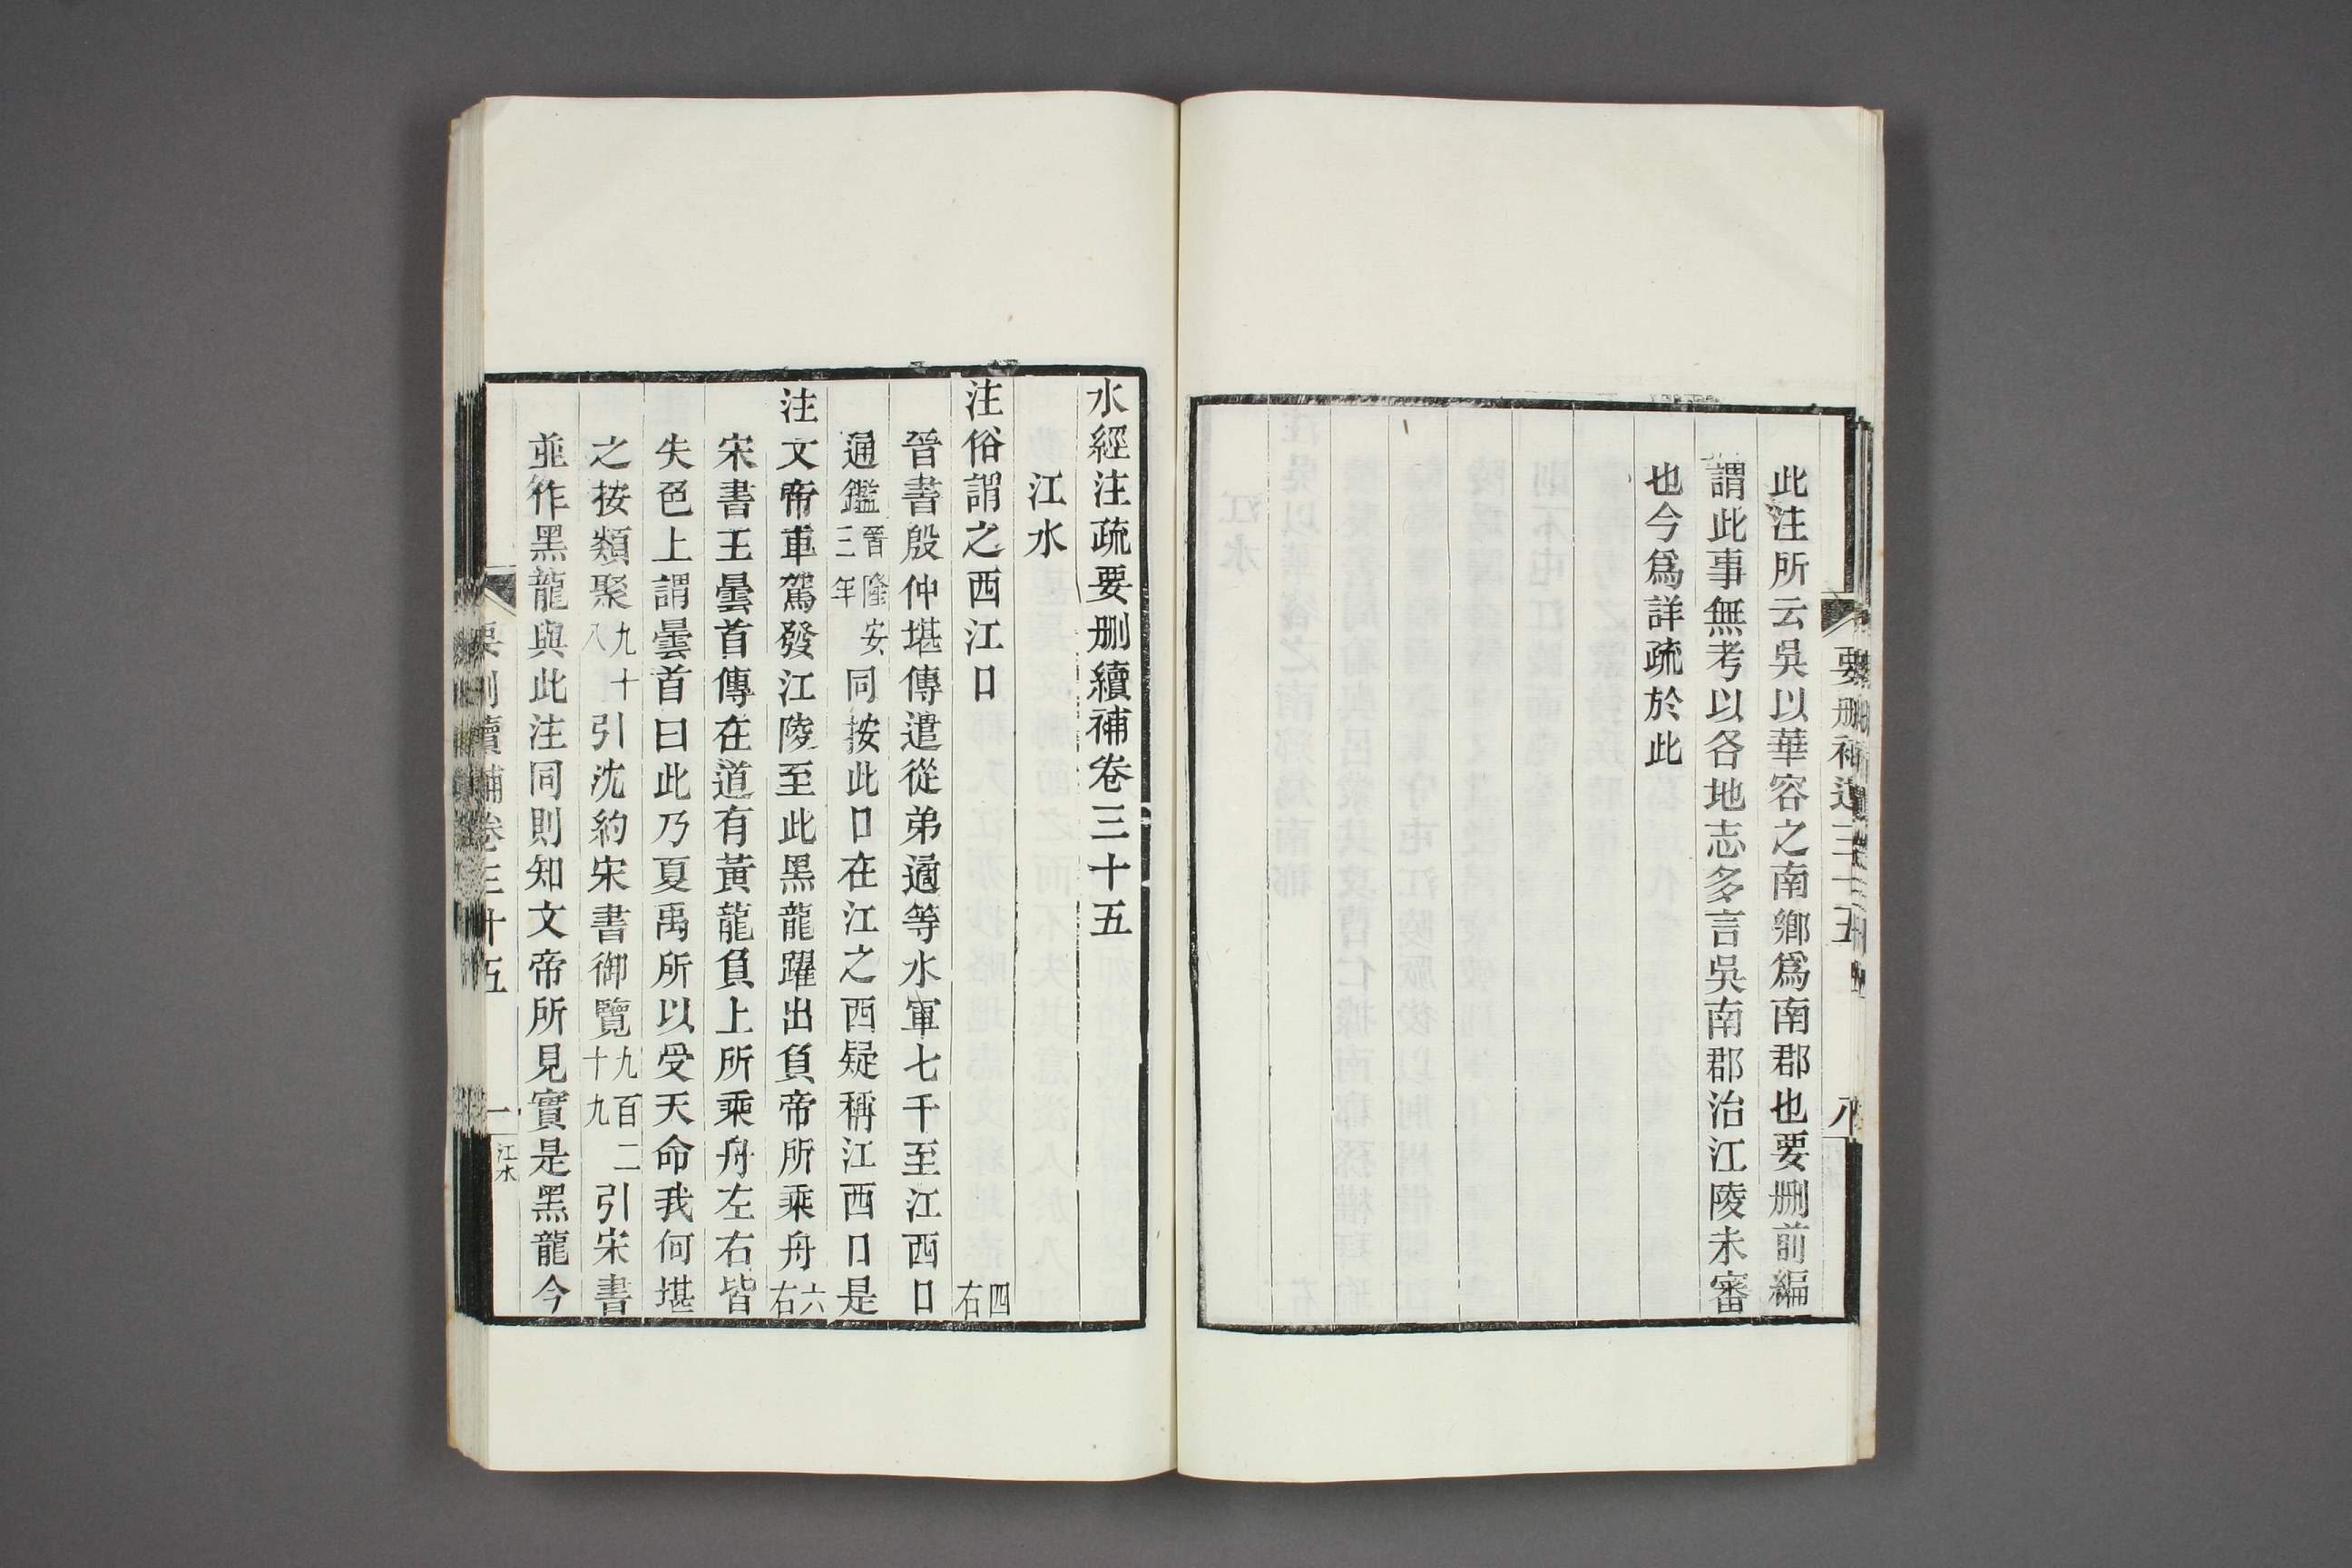 此注所云吳以華容之南鄉爲南郡也要刪前編
謂此事無考以各地志多言吳南郡治江陵未審
也今爲詳疏於此
水經注疏要刪續補卷三十五
江水
注俗謂之西江口四右
晉書殷仲堪傳遣從弟遹等水軍七千至江西口
通鑑晉隆安三年同按此口在江之西疑稱江西口是
注文帝車駕發江陵至此黑龍躍出負帝所乘舟六右
宋書王曇首傳在道有黃龍負上所乘舟左右皆
失色上謂曇首曰此乃夏禹所以受天命我何堪
之按類聚九十八引沈約宋書御覽九百二十九引宋書
並作黑龍與此注同則知文帝所見實是黑龍今
要刪續補卷三十五 一 江水